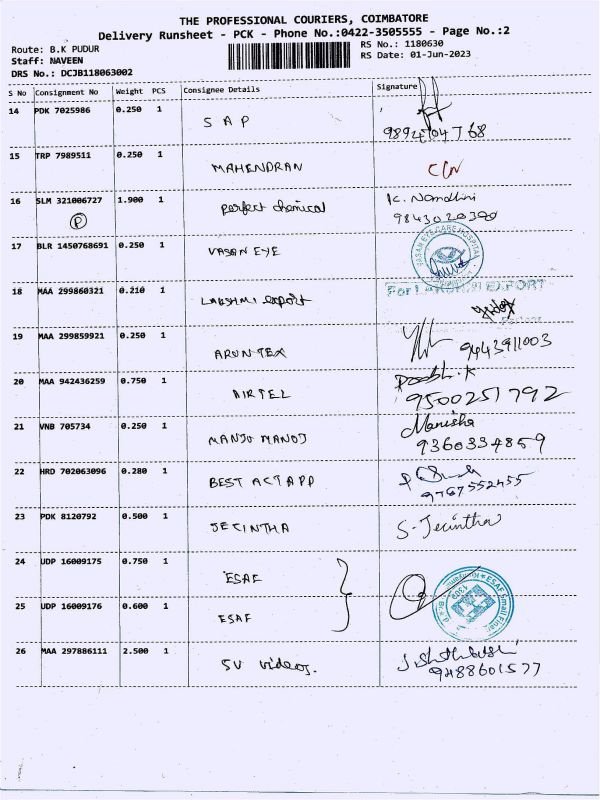 THE PROFESSIONAL COURIERS, COIMBATORE
Delivery Runsheet - PCK - Phone No.:0422-3505555 - Page No.:2
Route: B.K PUDUR RS No.: 1180630
Staff: NAVEEN RS Date: 01-Jun-2023
DRS No.: DCJB118063002
S No Consignment No Weight PCS Consignee Details Signature
14 PDK 7025986 0.250 1 SAP
9894704768
15 TRP 7989511 0.250 1 MAHENDRAN
16 SLM 321006727 1.900 1 perfect chemical K. Nandhini
P 9843020390
17 BLR 1450768691 0.250 1 VASAN EYE VASAN EYE CARE HOSPITAL
18 MAA 299860321 0.210 1 LAKSHMI export For LAKSHMI EXPORT
19 MAA 299859921 0.250 1 ARUN TEX 9443911003
20 MAA 942436259 0.750 1 AIRTEL
9500251792
21 VNB 705734 0.250 1 MANJU MANOJ Manisha
9360334859
22 HRD 702063096 0.280 1 BEST ACT APP
9767552455
23 PDK 8120792 0.500 1 JECINTHA S. Jecintha
24 UDP 16009175 0.750 1 ESAF ESAF Small
25 UDP 16009176 0.600 1 ESAF
26 MAA 297886111 2.500 1 SV videos.
9488601577